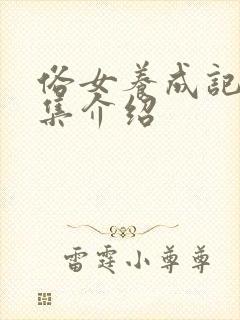 俗女养成记
集介绍
雷霆小尊尊